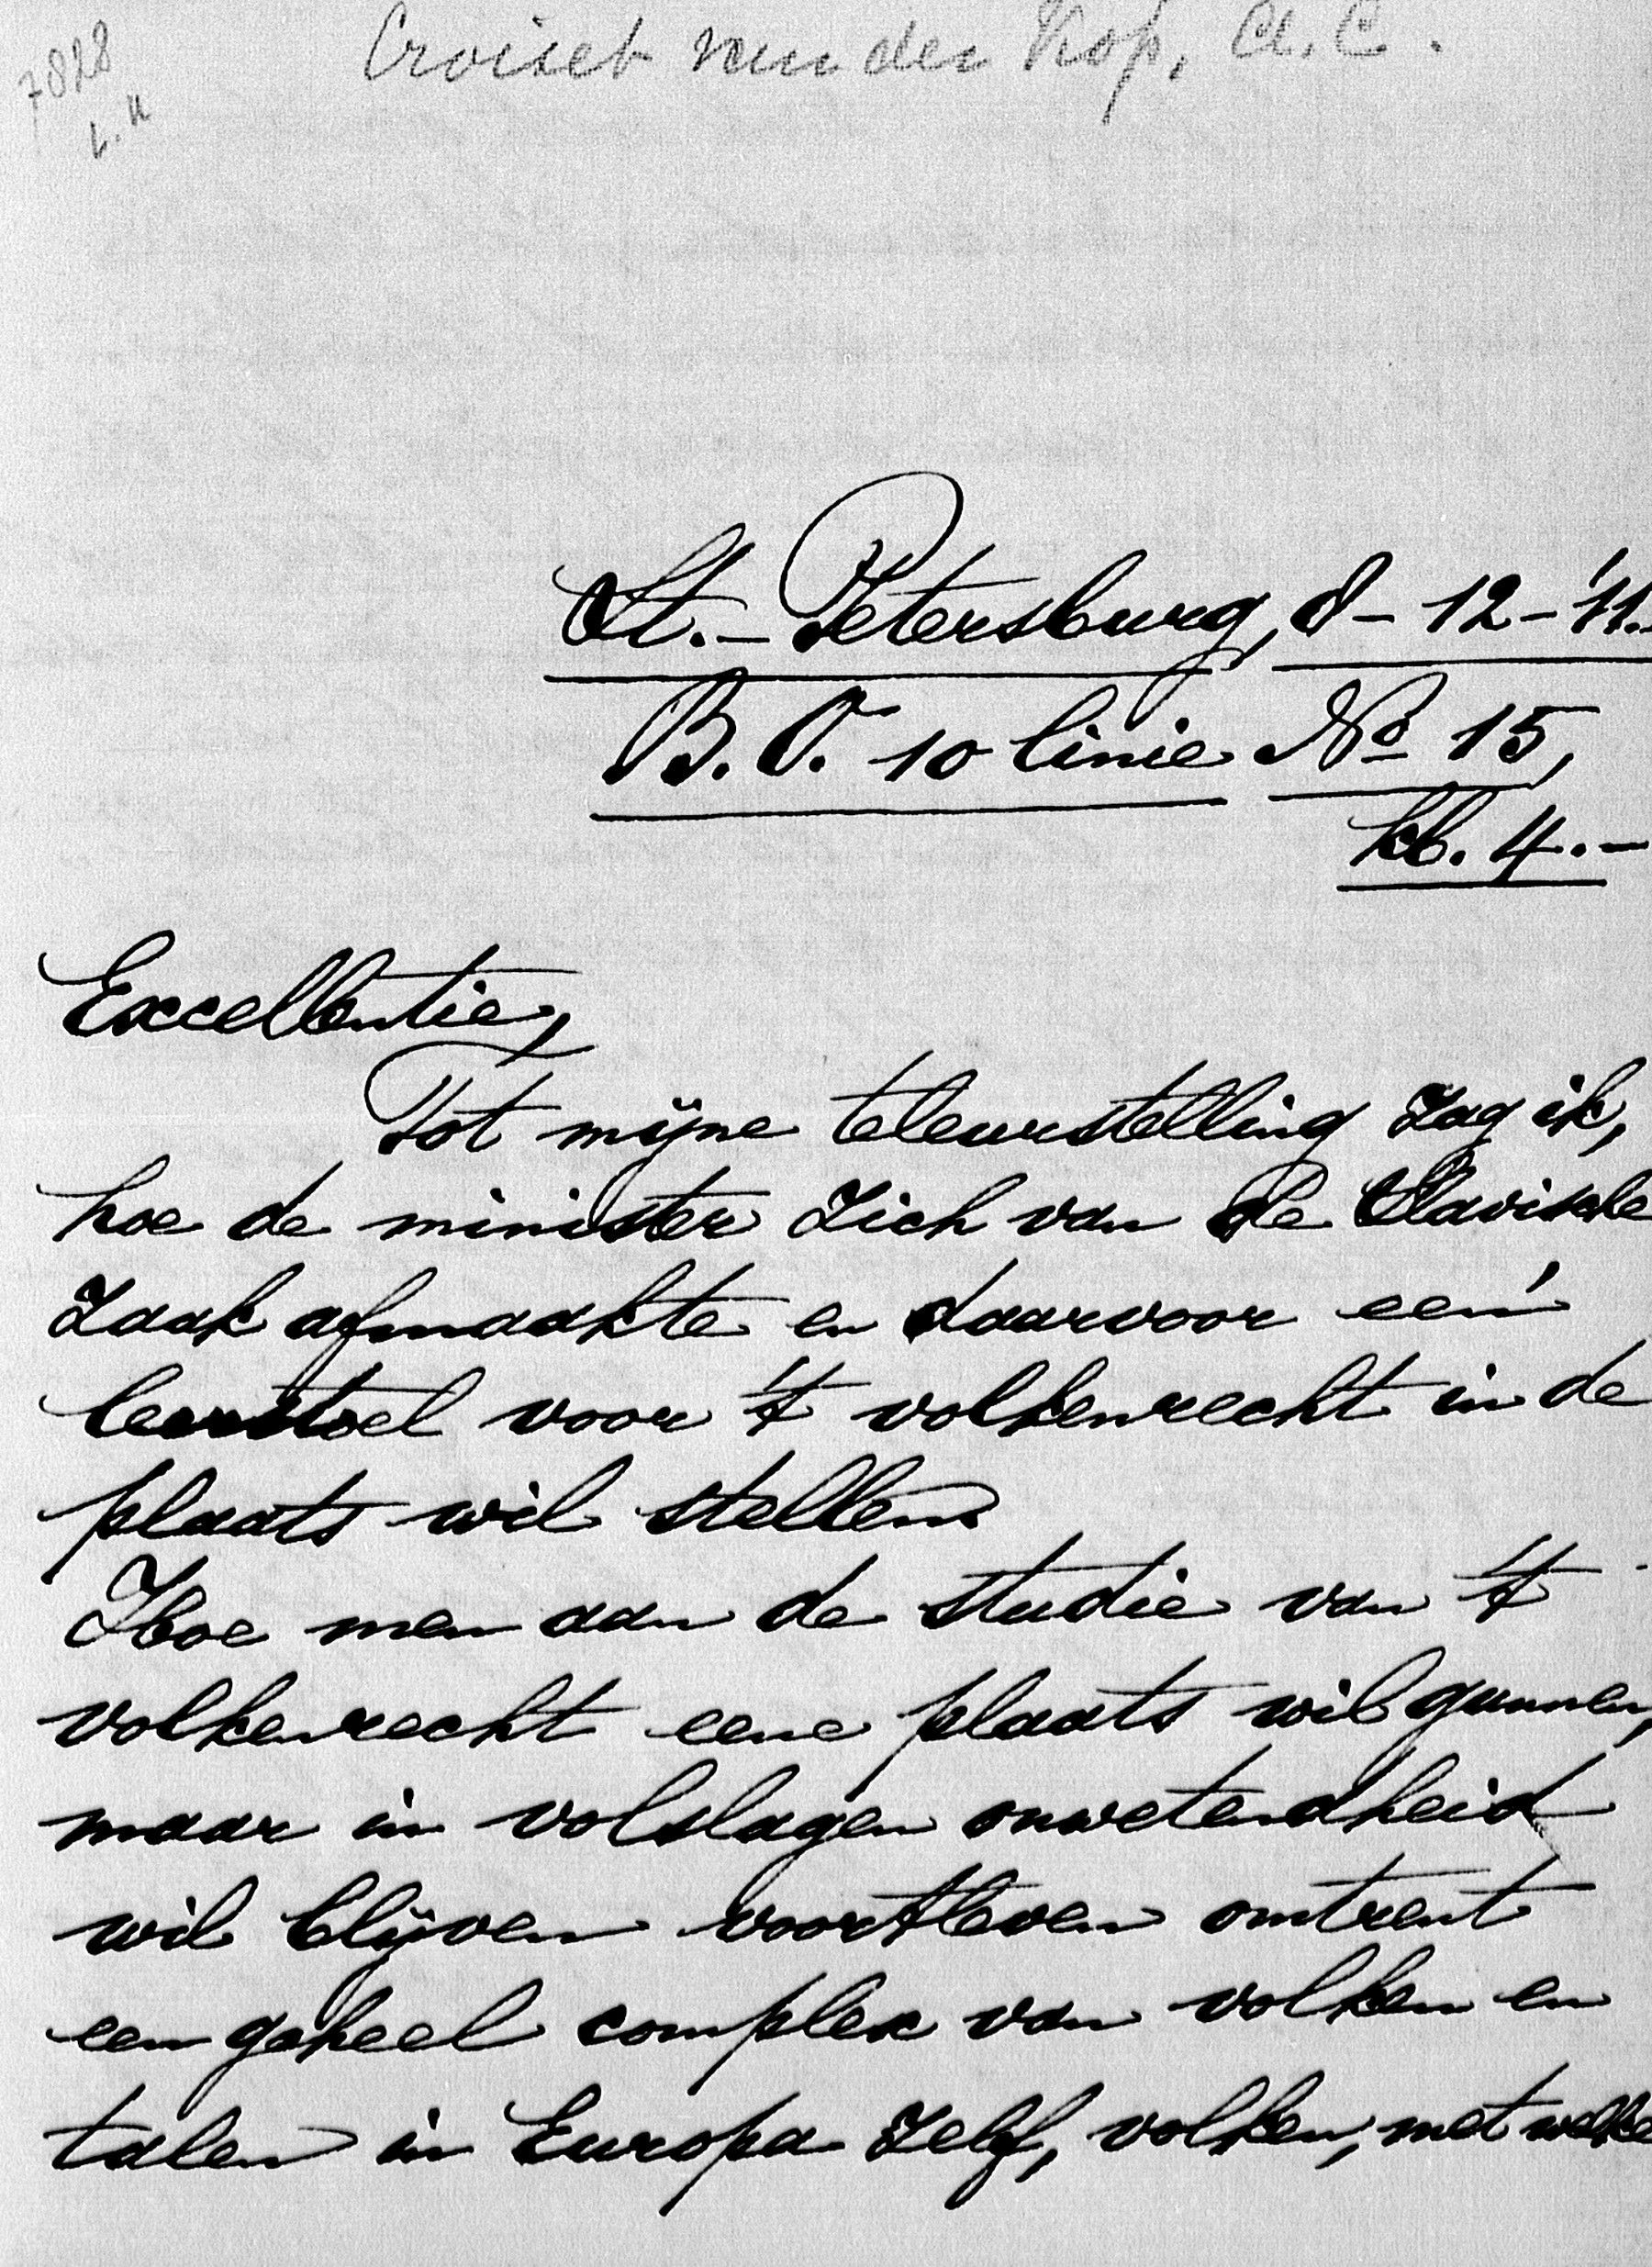 7828
Croiset van der Kop, A. C.
St.- Petersburg, 8 - 12 - '11.-
B. O. 10 linie No 15,
kb. 4.-
Excellentie,
Tot mijne teleurstelling zag ik,
hoe de minister zich van de Slavische
zaak afmaakte en daarvoor een
leerstoel voor 't volkenrecht in de
plaats wil stellen.
Hoe men aan de studie van 't
volkenrecht eene plaats wil gunnen,
maar in volslagen onwetendheid
wil blijven voortleven omtrent
een geheel complex van volken en
talen in Europa zelf, volken, met welke